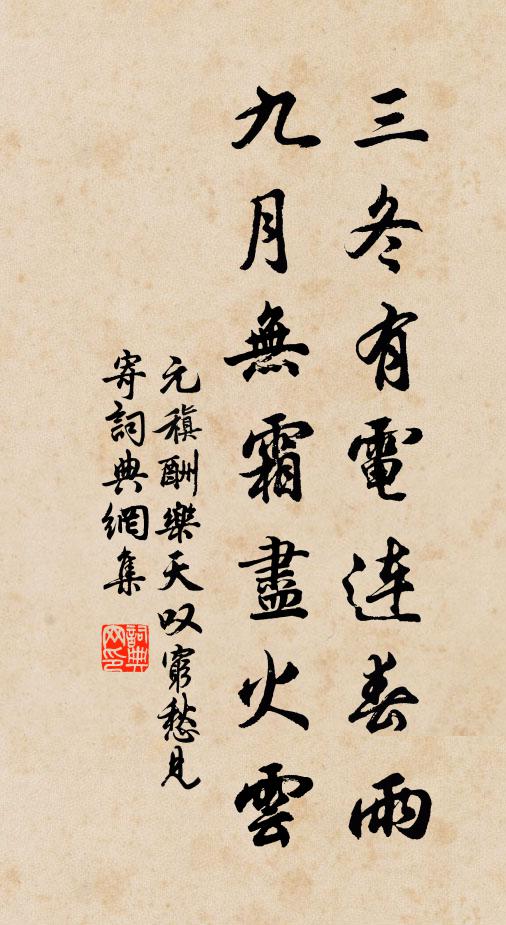 三冬有電連春雨
九月無霜盡火雲
元稹酬樂天叹窮愁見
寄詞典網集
詞典
网印